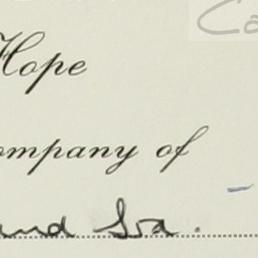 Ca
Hope
ompany of
and Iva.